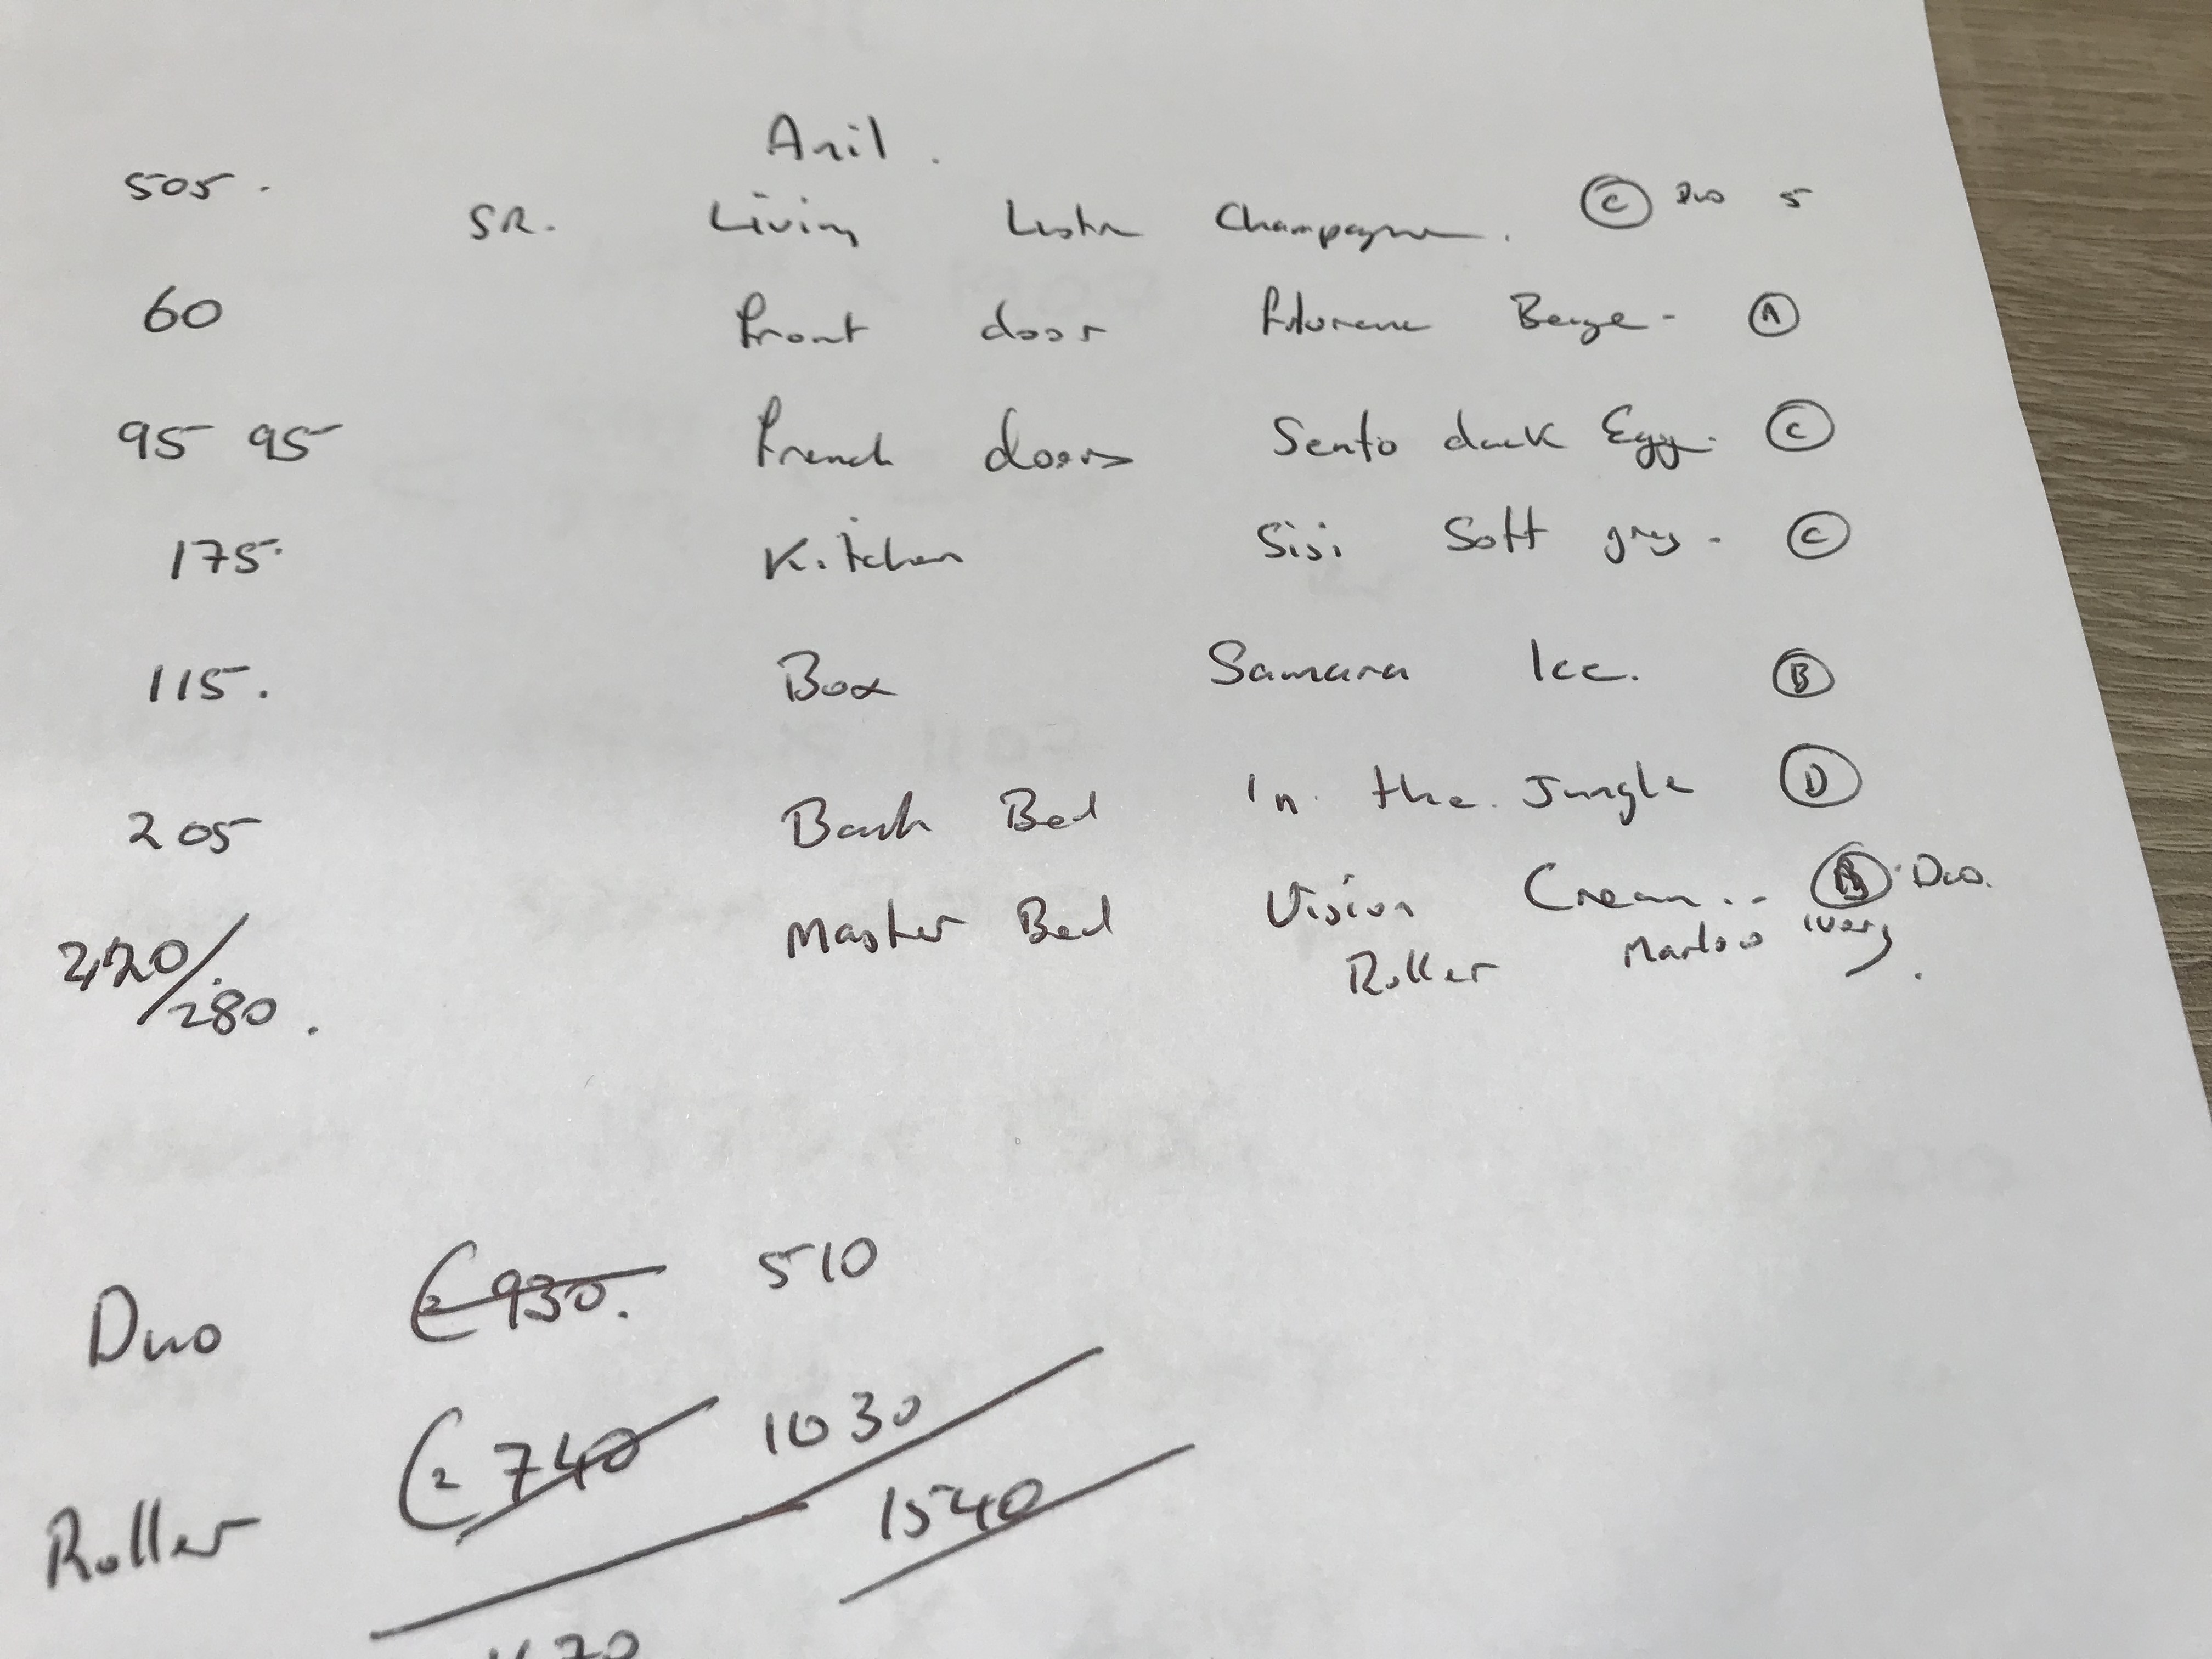 Anil.
505. SR. Living Lustre Champagne. C Duo 5
60 Front door Beige - A
95 95 French doors Sento duck Egg. C
175. Kitchen Sisi Soft grey - C
115. Box Samara Ice. B
205 Back Bed In the Jungle D
Master Bed Vision Cream.. B Duo.
/280. Roller Marlow Ivory.
Duo 930. 510
Roller 740 1030
1540